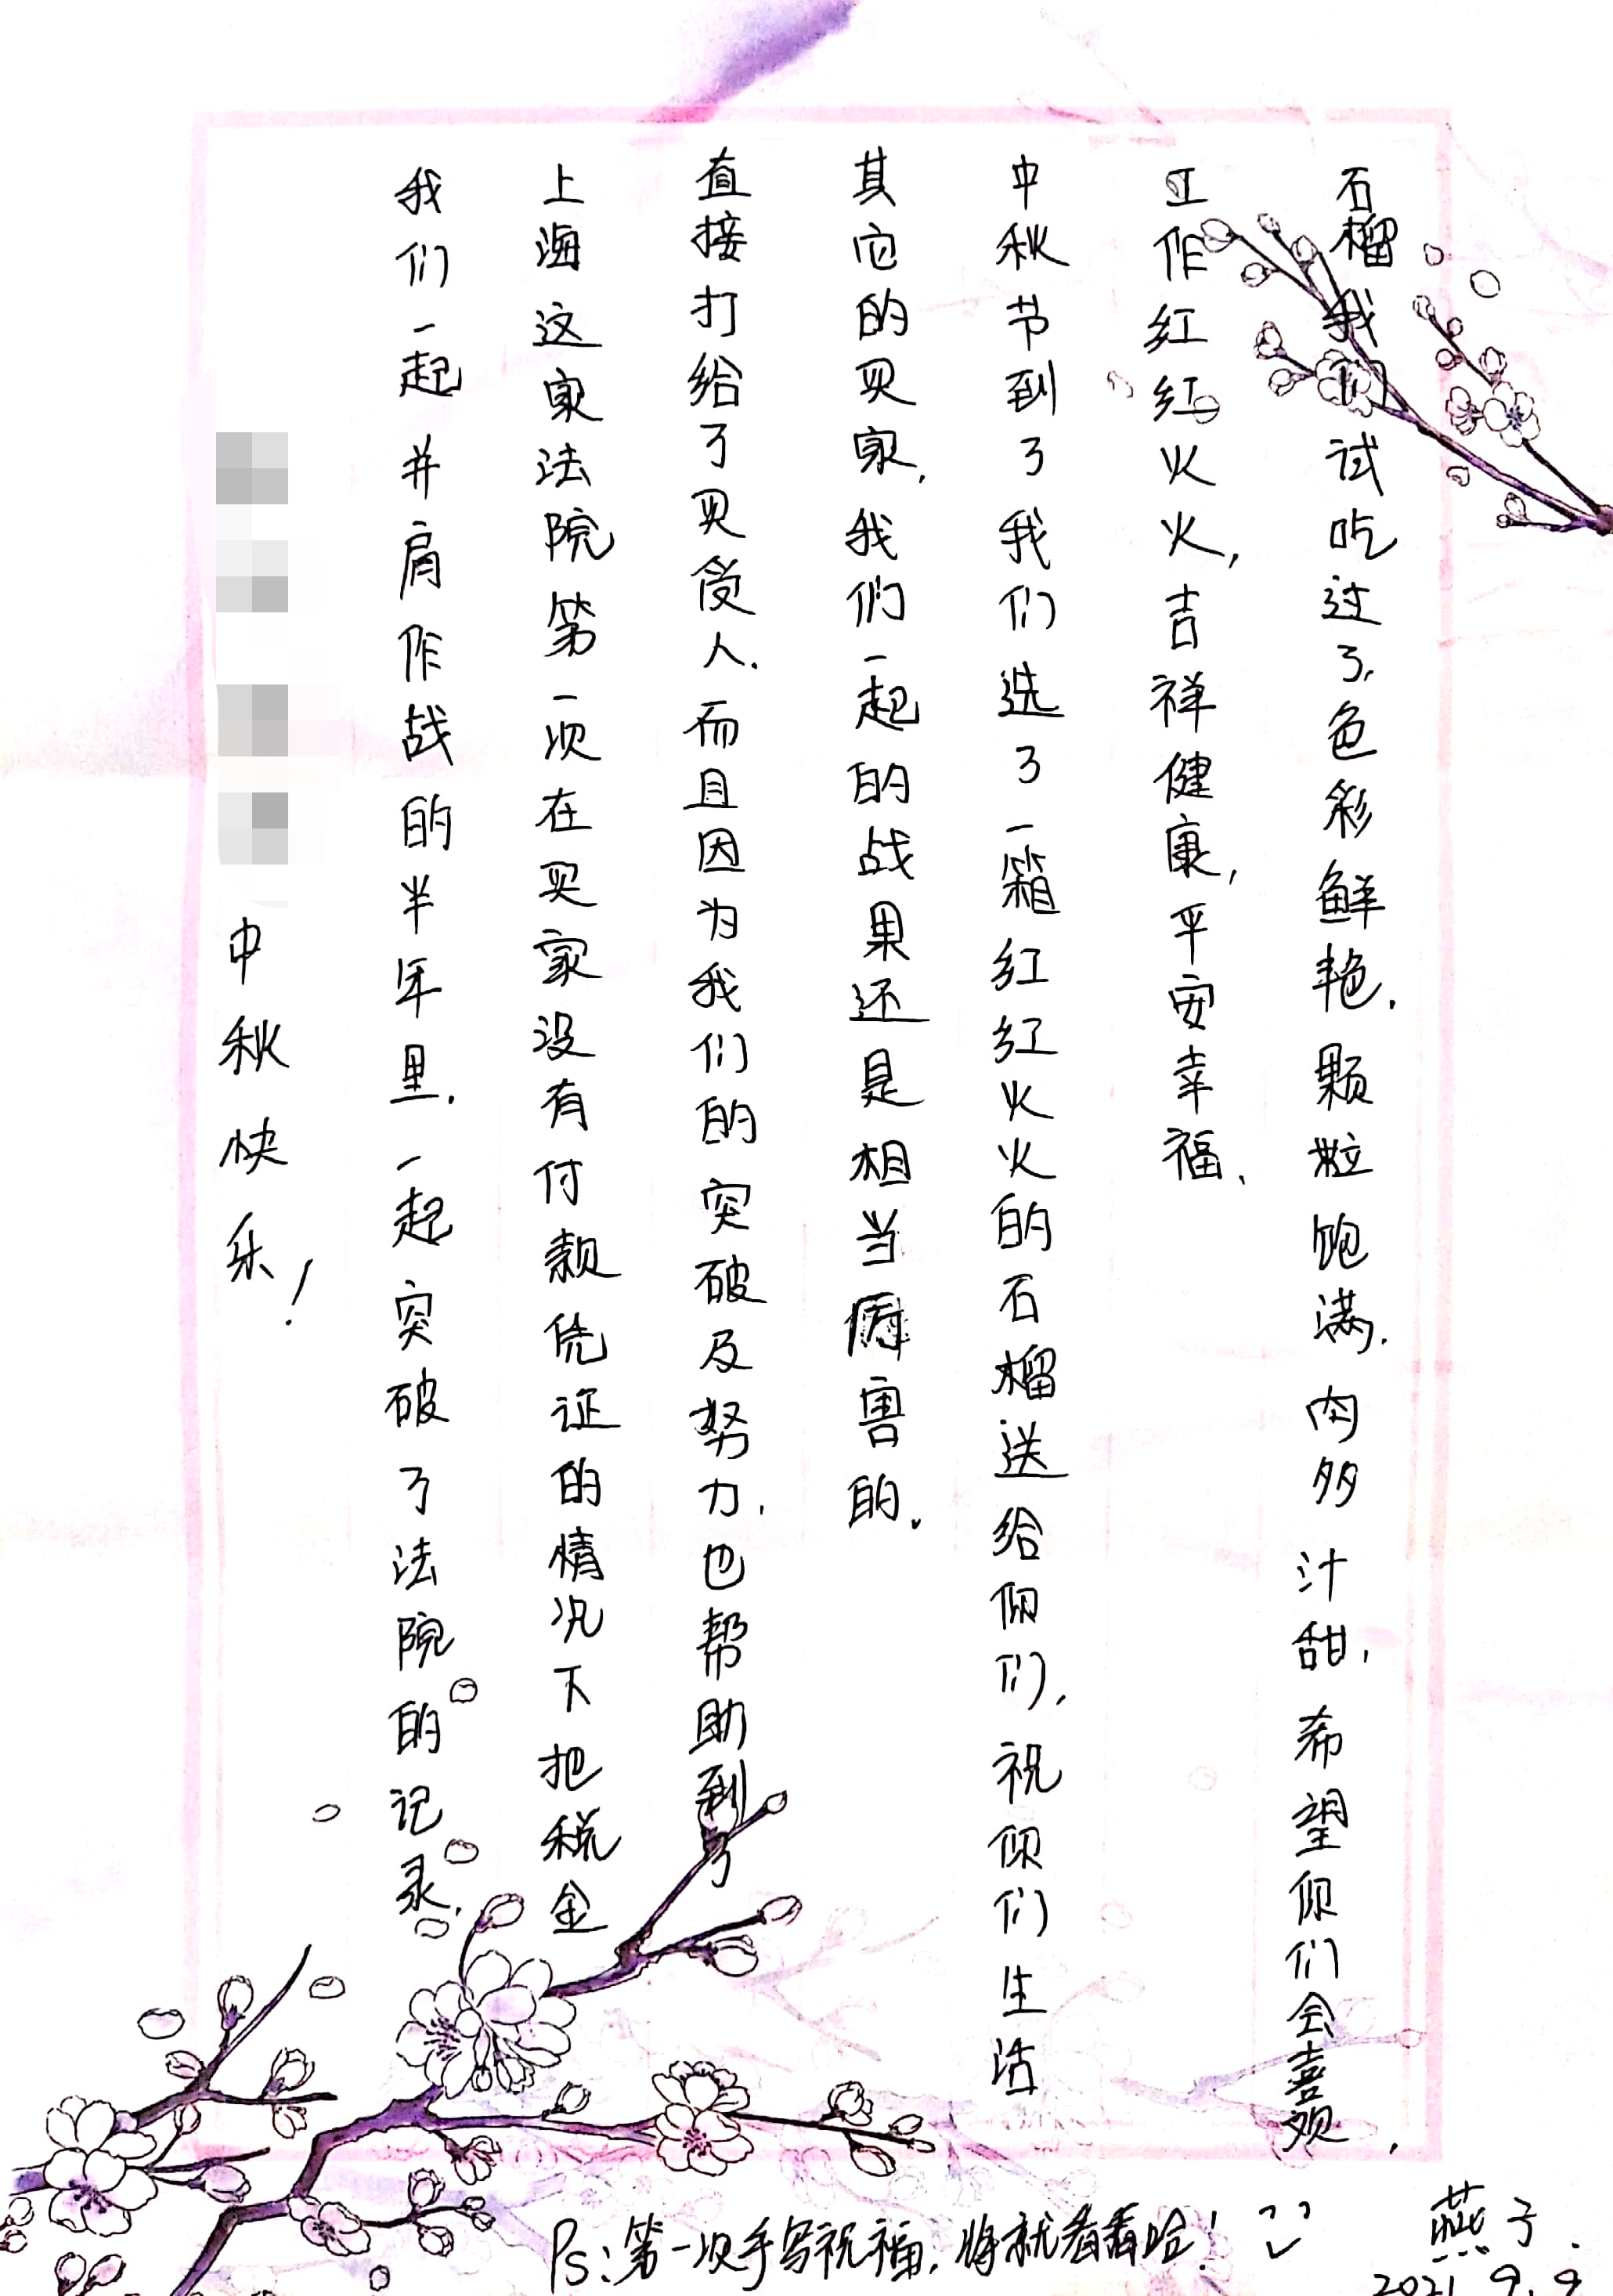 中秋快乐!
我们一起并肩作战的半年里.一起突破了法院的记录,
上海这家法院第一次在买家没有付款凭证的情况下把税金
直接打给了买受人.而且因为我们的突破及努力,也帮助到了
其它的买家,我们一起的战果还是相当厉害的.
中秋节到了我们选了一箱红红火火的石榴送给你们,祝你们生活
工作红红火火,吉祥健康,平安幸福、
石榴我们试吃过了,色彩鲜艳.颗粒饱满.肉多汁甜,希望你们会喜欢,
Ps:第一次手写祝福,将就看看哈!
燕子.
2021.9.9